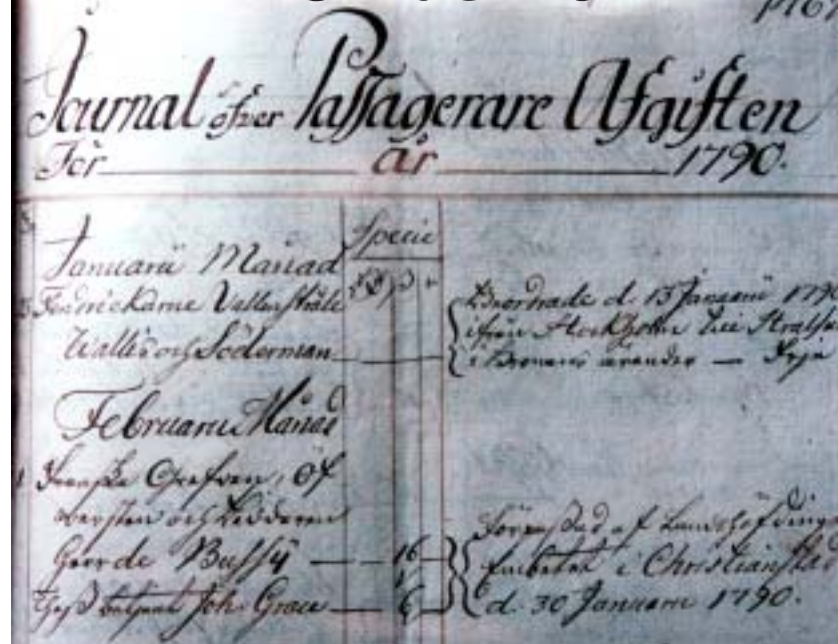 Journal öfver Passagerare Afgiften
För år 1790.
Specie
Januarii Månad
Fendrickarne Vallenstråle
Wallis och Söderman
Beordrade d. 15 Januarii 179
ifrån Stockholm till Strals
i Kronans ärender — Frja
Februarii Månad
1 Franske Grefven, Öf
versten och Riddaren
George de Bussÿ — 16
betjent Joh. Grace — 6
af Landshöfdinge
Embetet i Christianstad
d. 30 Januarii 1790.